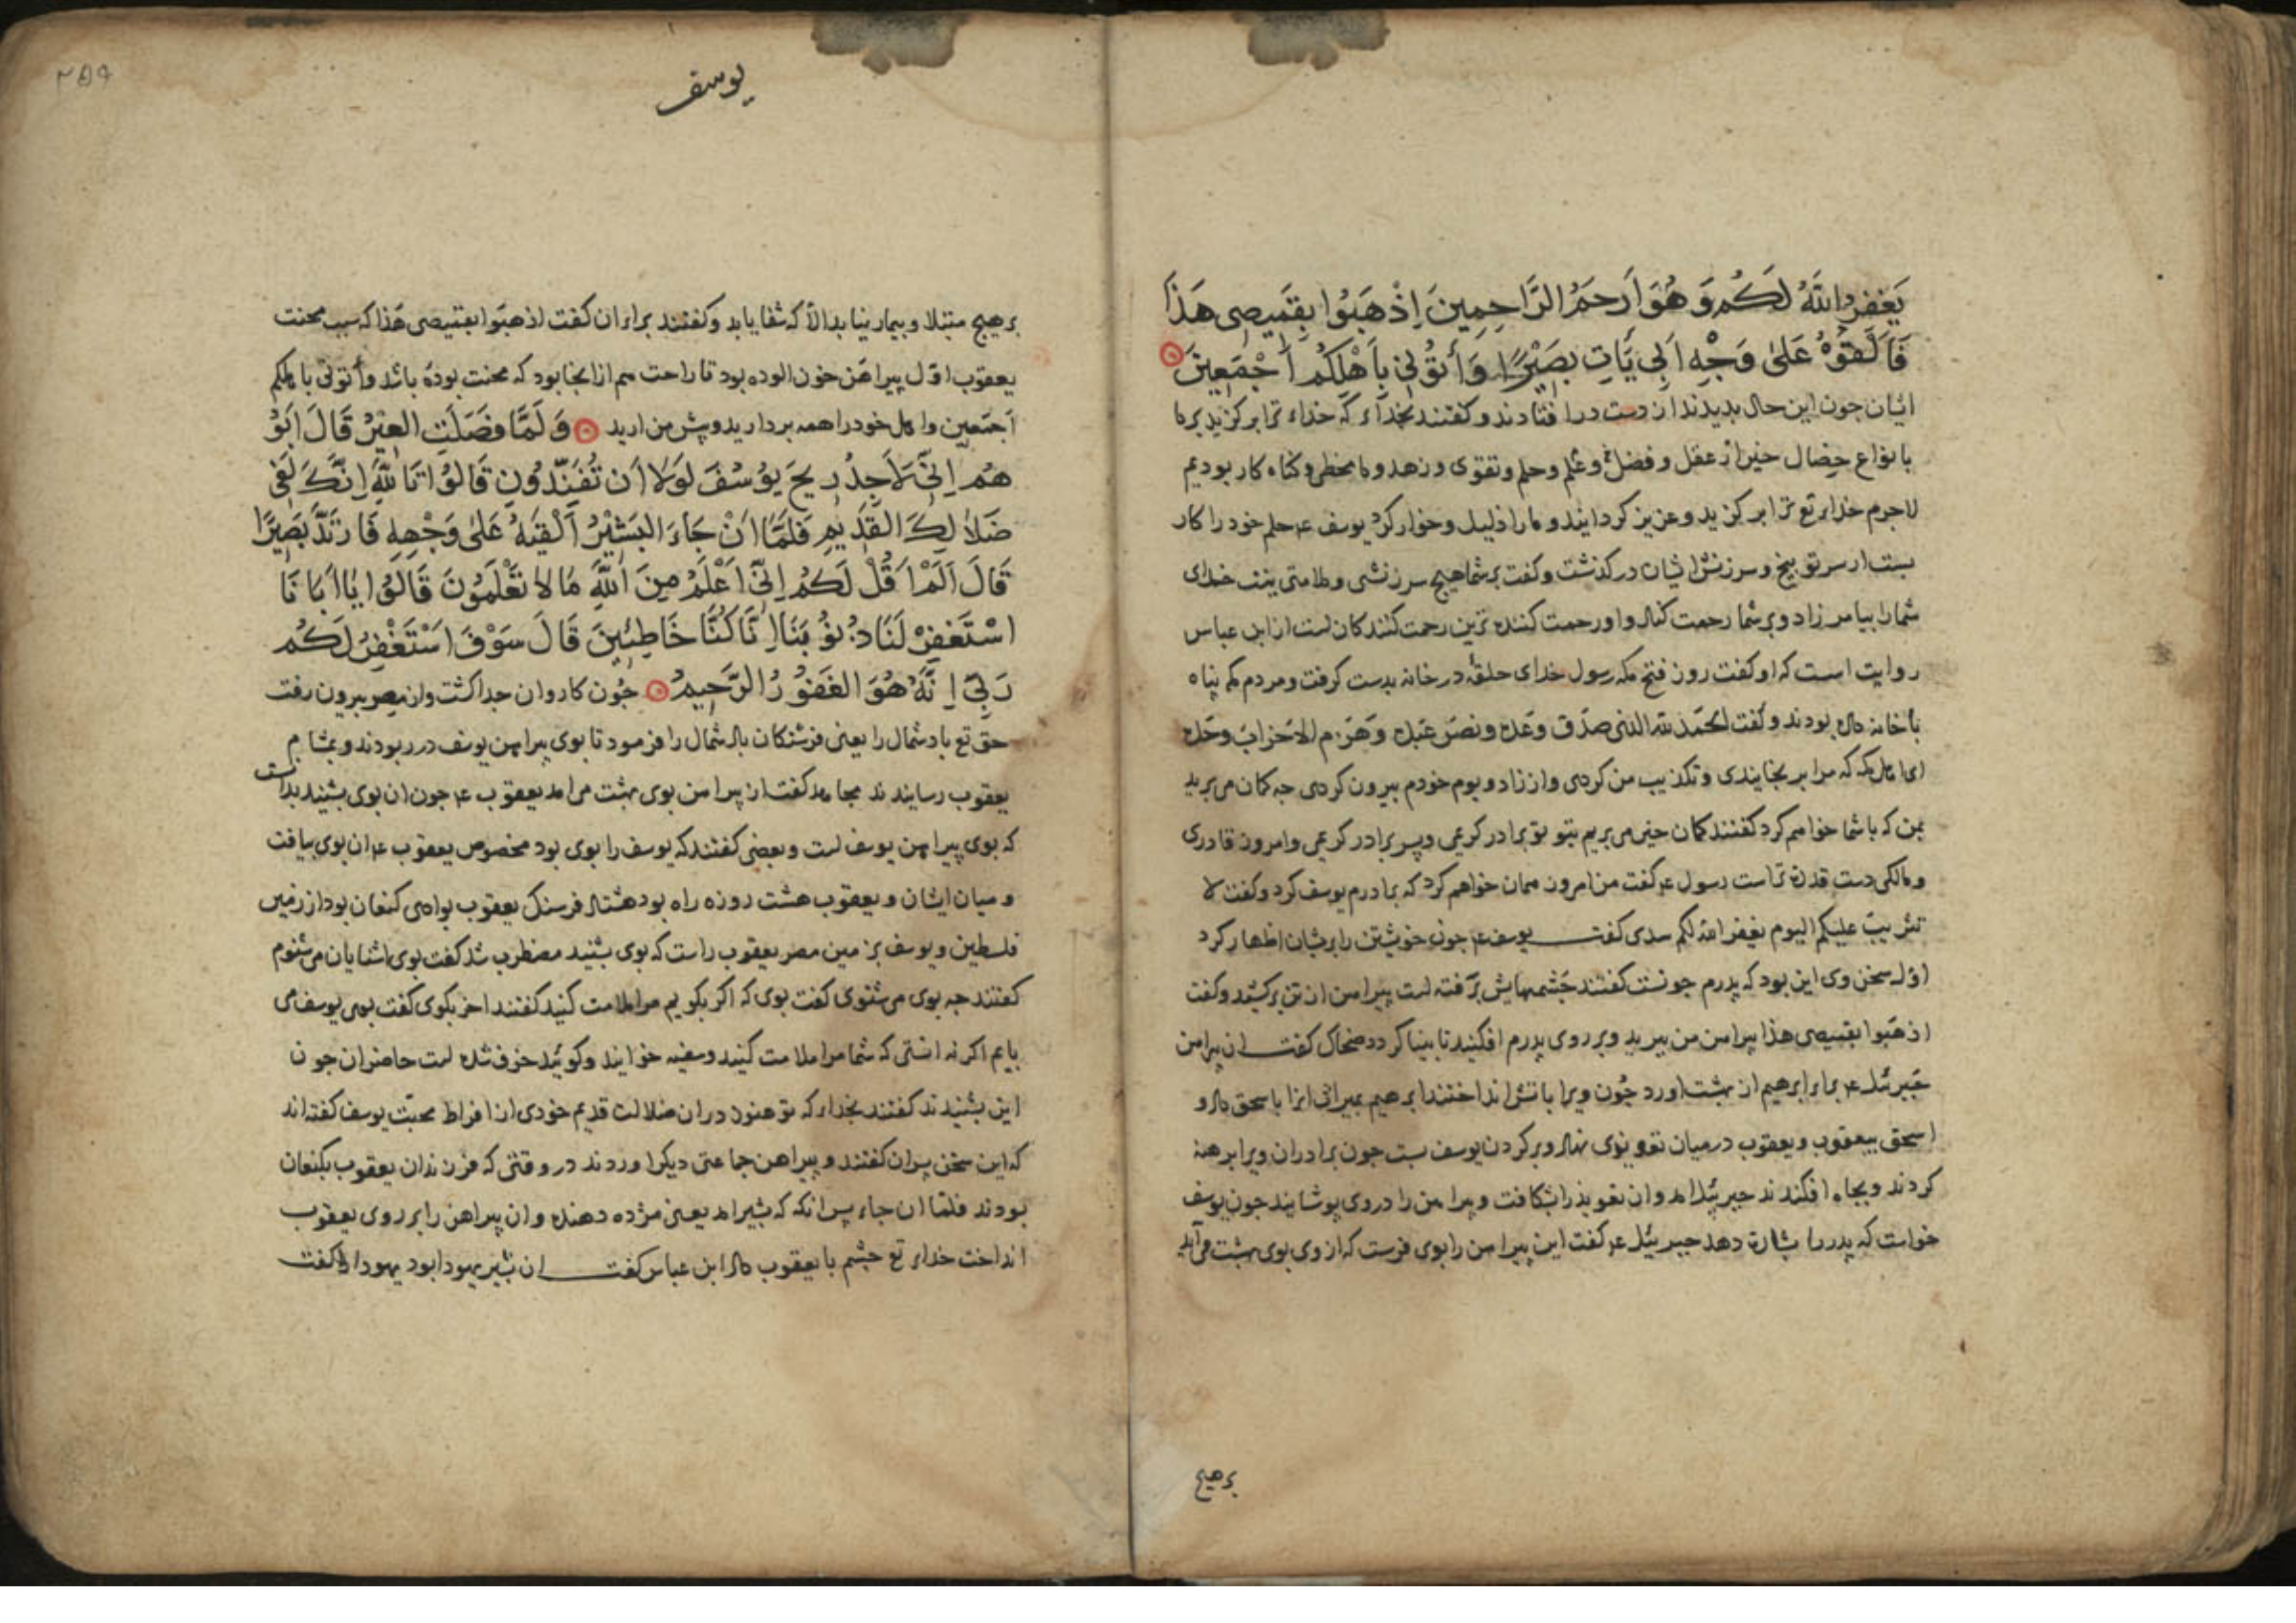 يَغْفِرُ اللَّهُ لَكُمْ وَهُوَ أَرْحَمُ الرَّاحِمِينَ اِذْهَبُوا بِقَمِيصِی هَذَا
فَاَلْقُوْهُ عَلیٰ وَجْهِ اَبِی يَأتِ بَصِيْرًا وَأتُوْنِی بِاَهْلِكُمْ اَجْمَعِينَ
ایشان جون این حال بدیدند از دست درافتادند و کفتند بخداء که خداء ترا برکزید بر ما
بانواع خصال خیر از عقل و فضل و علم و حلم و تقوی و زهد و ما مخطی و کناه کار بودیم
لاجرم خدای تع ترا برکزید و عزیز کردانید و مارا ذلیل و خوار کرد یوسف ع حلم خود را کار
بست از سر توبیخ و سرزنش ایشان درکذشت و کفت بر شما هیج سرزنشی و ملامتی نیست خدای
شمارا بیامرزاد و بر شما رحمت کناد و او رحمت کننده ترین رحمت کنندکان است از ابن عباس
روایت است که او کفت روز فتح مکه رسول خدای حلقهٔ در خانه بدست کرفت و مردم مکه پناه
با خانه داده بودند و کفت الحمد لله الذی صدق وعده ونصر عبده وهزم الاحزاب وحده
ای اهل مکه که مرا برنجانیدی و تکذیب من کردی و از زاد و بوم خودم بیرون کردی جه کمان می برید
بمن که با شما خواهم کرد کفتند کمان خیر می بریم بتو تو برادر کریمی و پسر برادر کریمی و امروز قادری
و مالکی دست قدرت تراست رسول ع کفت من امروز همان خواهم کرد که برادرم یوسف کرد و کفت لا
تثریب علیکم الیوم یغفر الله لکم سدی کفت یوسف ع جون خویشتن را بریشان اظهار کرد
اول سخن وی این بود که پدرم جونست کفتند جشمهایش برفته است پیراهن از تن برکشید و کفت
اذهبوا بقمیصی هذا پیراهن من ببرید و بر روی پدرم افکنید تا بینا کردد ضحاک کفت ان پیراهن
جبرئیل ع برای ابرهیم از بهشت اورد جون ویرا باتش انداختند ابرهیم بمیراث انرا باسحق داد و
اسحق بیعقوب و یعقوب در میان تعویذی نهاد و بر کردن یوسف بست جون برادران ویرا برهنه
کردند و بجاه افکندند جبرئیل امد و ان تعویذ را بشکافت و پیراهن را در وی پوشانید جون یوسف
خواست که پدر را بشارت دهد جبرئیل ع کفت این پیراهن را بوی فرست که از وی بوی بهشت می آید
برهیج
یوسف
۲۵۹
برهیج مبتلا و بیمار نیاید الا که شفا یابد و کفتند برادران کفت اذهبوا بقمیصی هذا که سبب محنت
یعقوب اول پیراهن خون الوده بود تا راحت هم از انجا بود که محنت بوده باشد وأتونی باهلکم
اجمعین و اهل خود را همه بردارید و پیش من ارید وَلَمَّا فَصَلَتِ الْعِيْرُ قَالَ اَبُوْ
هُمْ اِنِّی لَاَجِدُ رِيحَ يُوْسُفَ لَوْلَا اَن تُفَنِّدُونِ قَالُوْا تَاللَّهِ اِنَّكَ لَفِی
ضَلَالِكَ الْقَدِيمِ فَلَمَّا اَنْ جَاءَ الْبَشِيْرُ اَلْقَيهُ عَلیٰ وَجْهِهٖ فَارْتَدَّ بَصِيْرًا
قَالَ اَلَمْ اَقُلْ لَكُمْ اِنِّی اَعْلَمُ مِنَ اللَّهِ مَا لَا تَعْلَمُوْنَ قَالُوْا يَا اَبَانَا
اسْتَغْفِرْ لَنَا ذُنُوْبَنَا اِنَّا كُنَّا خَاطِئِينَ قَالَ سَوْفَ اَسْتَغْفِرُ لَكُمْ
رَبِّی اِنَّهُ هُوَ الْغَفُوْرُ الرَّحِيمُ جون کاروان جدا کشت و از مصر بیرون رفت
حق تع باد شمال را یعنی فرشتکان باد شمال را فرمود تا بوی پیراهن یوسف در ربودند و بمشام
یعقوب رسانیدند مجاهد کفت از پیراهن بوی بهشت می امد یعقوب ع جون ان بوی بشنید بدانست
که بوی پیراهن یوسف است و بعضی کفتند که یوسف را بوی بود مخصوص یعقوب ع ان بوی بیافت
و میان ایشان و یعقوب هشت روزه راه بود هشتاد فرسنک یعقوب بوادی کنعان بود از زمین
فلسطین و یوسف بزمین مصر یعقوب راست که بوی بشنید مضطرب شد کفت بوی اشنایان می شنوم
کفتند جه بوی می شنوی کفت بوی که اکر بکویم مرا ملامت کنید کفتند اخر بکوی کفت بوی یوسف می
یابم اکر نه انستی که شما مرا ملامت کنید و سفیه خوانید و کوئید خرف شده است حاضران جون
این بشنیدند کفتند بخداء که تو هنوز در ان ضلالت قدیم خودی از افراط محبت یوسف کفته اند
که این سخن پسران کفتند و پیراهن جماعتی دیکر اوردند در وقتی که فرزندان یعقوب بکنعان
بودند فلما ان جاء پس انکه که بشیر امد یعنی مژده دهنده و ان پیراهن را بر روی یعقوب
انداخت خداء تع جشم با یعقوب داد ابن عباس کفت ان بشیر یهودا بود یهودا کفت